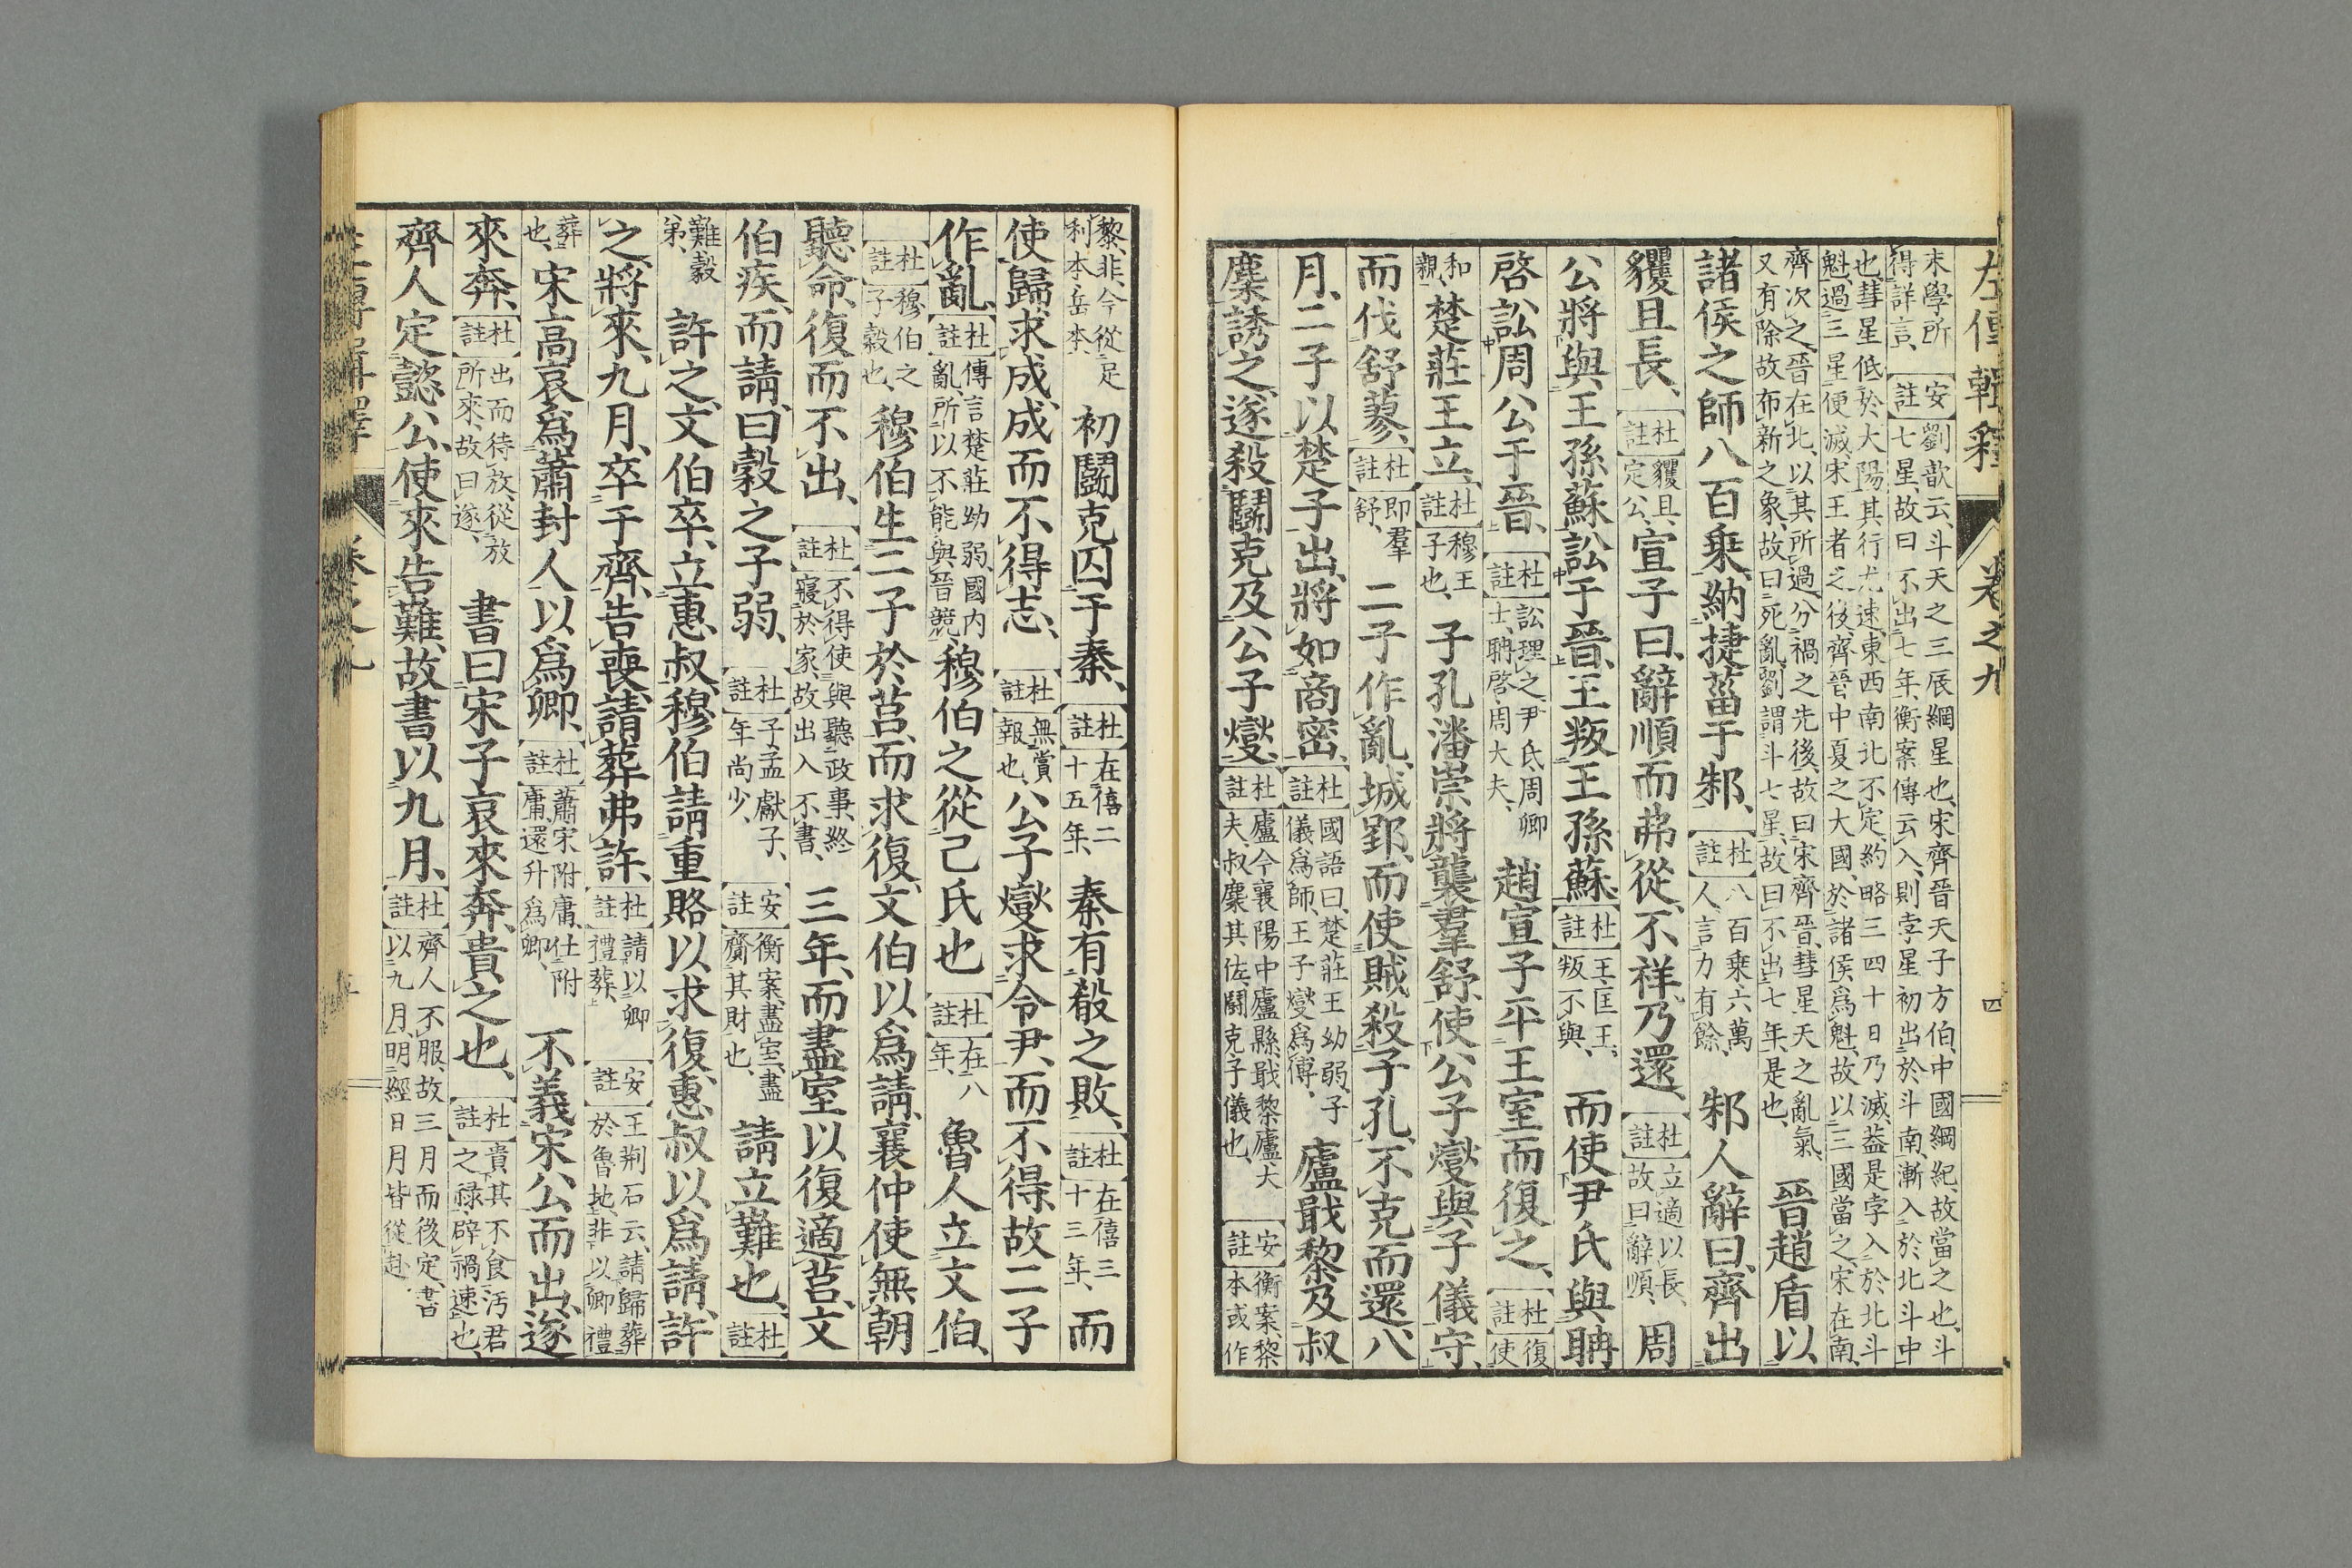 左傳輯釋　卷之九　四
末學所得詳言、安註劉歆云、斗天之三辰綱星也、宋齊晉天子方伯、中國綱紀、故當之也、斗七星、故曰不出七年、衡案傳云、入、則孛星初出於斗南、漸入於北斗中
也、彗星低於大陽、其行尤速、東西南北不定、約略三四十日乃滅、葢是孛入於北斗魁、過三星便滅、宋王者之後、齊晉中夏之大國、於諸侯爲魁、故以三國當之、宋在南、
齊次之、晉在北、以其所過分禍之先後、故曰宋齊晉、彗星天之亂氣、又有除故布新之象、故曰死亂、劉謂斗七星、故曰不出七年、是也、晉趙盾以
諸侯之師八百乘、納捷菑于邾、杜註八百乘、六萬人、言力有餘、邾人辭曰、齊出
貜且長、杜註貜且、定公、宣子曰、辭順而弗從、不祥、乃還、杜註立適以長、故曰辭順、周
公將與王孫蘇訟于晉、王叛王孫蘇、杜註王、匡王、叛不與、而使尹氏與聃
啓訟周公于晉、杜註訟理之、尹氏周卿士、聃啓、周大夫、趙宣子平王室而復之、杜註復使
和親、楚莊王立、杜註穆王子也、子孔潘崇將襲羣舒、使公子燮與子儀守、
而伐舒蓼、杜註即羣舒、二子作亂、城郢、而使賊殺子孔、不克而還、八
月、二子以楚子出、將如商密、杜註國語曰、楚莊王幼弱、子儀爲師、王子燮爲傅、廬戢黎及叔
麇誘之、遂殺鬭克及公子燮、杜註廬今襄陽中廬縣、戢黎、廬大夫、叔麇其佐、鬭克子儀也、安註衡案、黎本或作
黎、非、今從足利本岳本、初鬭克囚于秦、杜註在僖二十五年、秦有殽之敗、杜註在僖三十三年、而
使歸求成、成而不得志、杜註無賞報也、公子燮求令尹、而不得、故二子
作亂、杜註傳言楚莊幼弱、國内亂、所以不能與晉競、穆伯之從己氏也、杜註在八年、魯人立文伯、
杜註穆伯之子穀也、穆伯生二子於莒、而求復、文伯以爲請、襄仲使無朝
聽命、復而不出、杜註不得使與聽政事、終寢於家、故出入不書、三年、而盡室以復適莒、文
伯疾、而請曰、穀之子弱、杜註子孟獻子、年尚少、安註衡案、盡室、盡齎其財也、請立難也、杜註
難穀弟、許之、文伯卒、立惠叔、穆伯請重賂以求復、惠叔以爲請、許
之、將來、九月、卒于齊、告喪、請葬、弗許、杜註請以卿禮葬、安註王荊石云、請歸葬於魯地、非以卿禮
葬也、宋高哀爲蕭封人、以爲卿、杜註蕭宋附庸、仕附庸、還升爲卿、不義宋公而出、遂
來奔、杜註出而待放、從放所來、故曰遂、書曰宋子哀來奔、貴之也、杜註貴其不食汚君之祿、辟禍速也、
齊人定懿公、使來告難、故書以九月、杜註齊人不服、故三月而後定、書以九月、明經日月皆從赴、